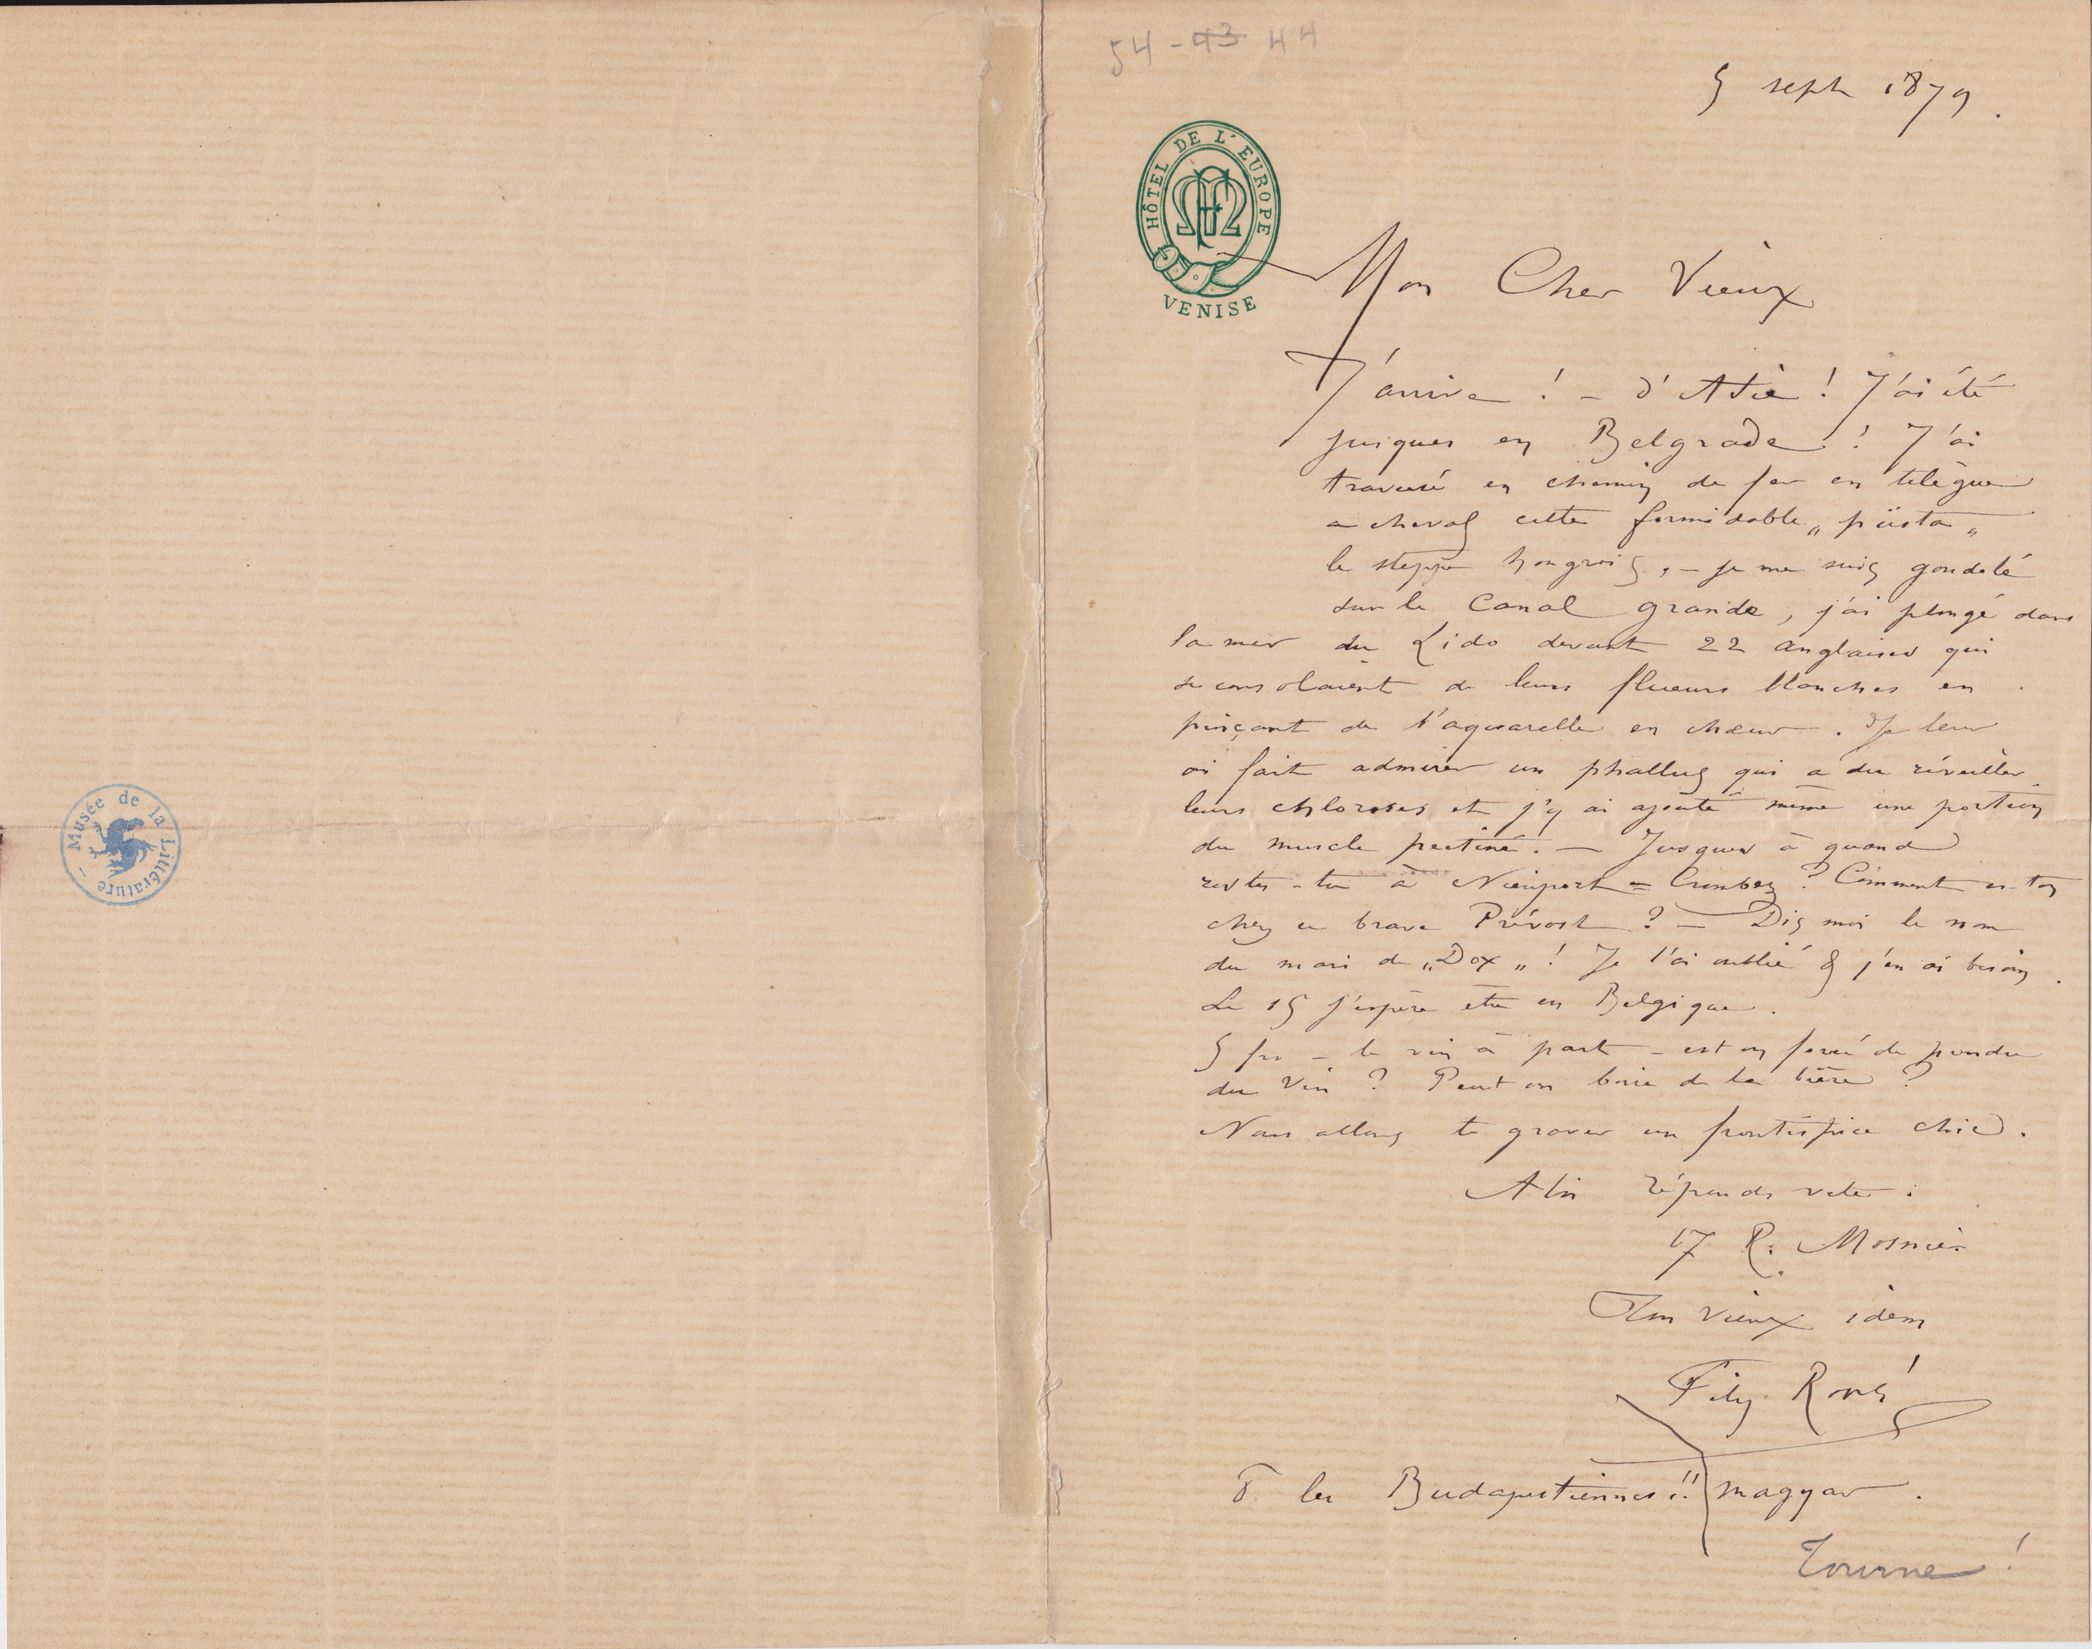 Musée de la Littérature
54-43 44
5 sept 1879.
HÔTEL DE L'EUROPE
VENISE
Mon Cher Vieux
J'arrive ! – d'Asie ! J'ai été
jusques en Belgrade ! J'ai
traversé en chemin de fer en télègue
a cheval cette formidable „püsta„
le steppe hongrois, – je me suis gondolé
sur le Canal grande, j'ai plongé dans
la mer du Lido devant 22 anglaises qui
se consolaient de leurs flueurs blanches en
pinçant de l'aquarelle en chœur. Je leur
ai fait admirer un phallus qui a du réveiller
leurs chloroses et j'y ai ajouté même une portion
du muscle pectiné. – Jusques à quand
restes-tu à Nieuport=Crombez ? Comment es-ton
chez ce brave Prévost ? – Dis moi le nom
du mari de „Dox„ ! Je l'ai oublié & j'en ai besoin.
Le 15 j'espère être en Belgique.
5 frs – le vin à part – est on forcé de prendre
du vin ? Peut on boire de la bière ?
Nous allons te graver un frontispice chic.
réponds vite :
17 R. Mosnier
Ton vieux idem
Fély Rops
& les Budapestiennes !! magyar.
Tourne !